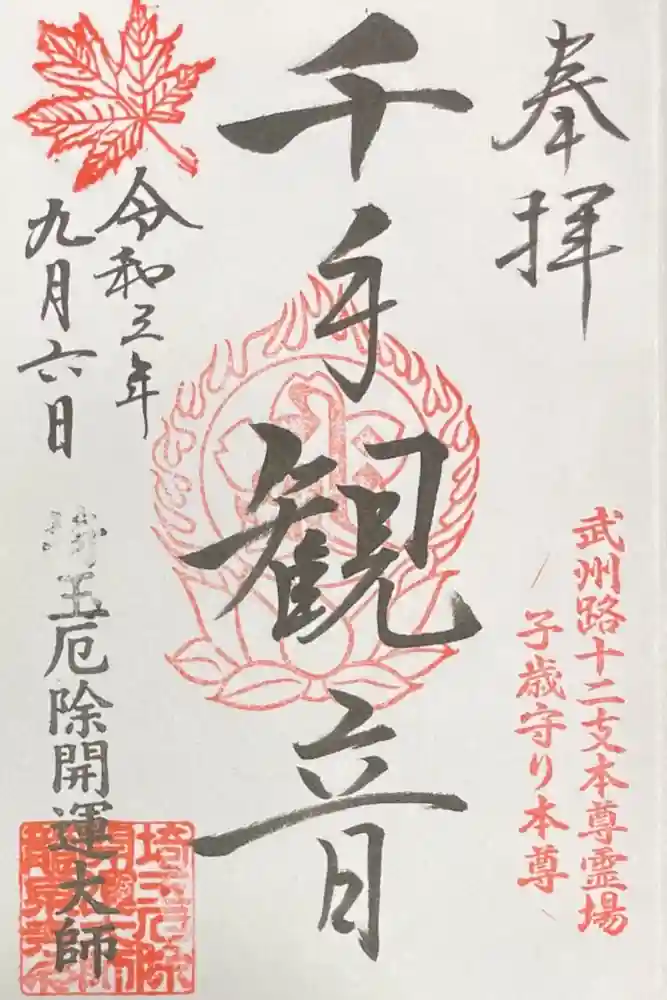 奉拝
武州路十二支本尊霊場
子歳守り本尊
千手観音
令和三年
九月六日
埼玉厄除開運大師